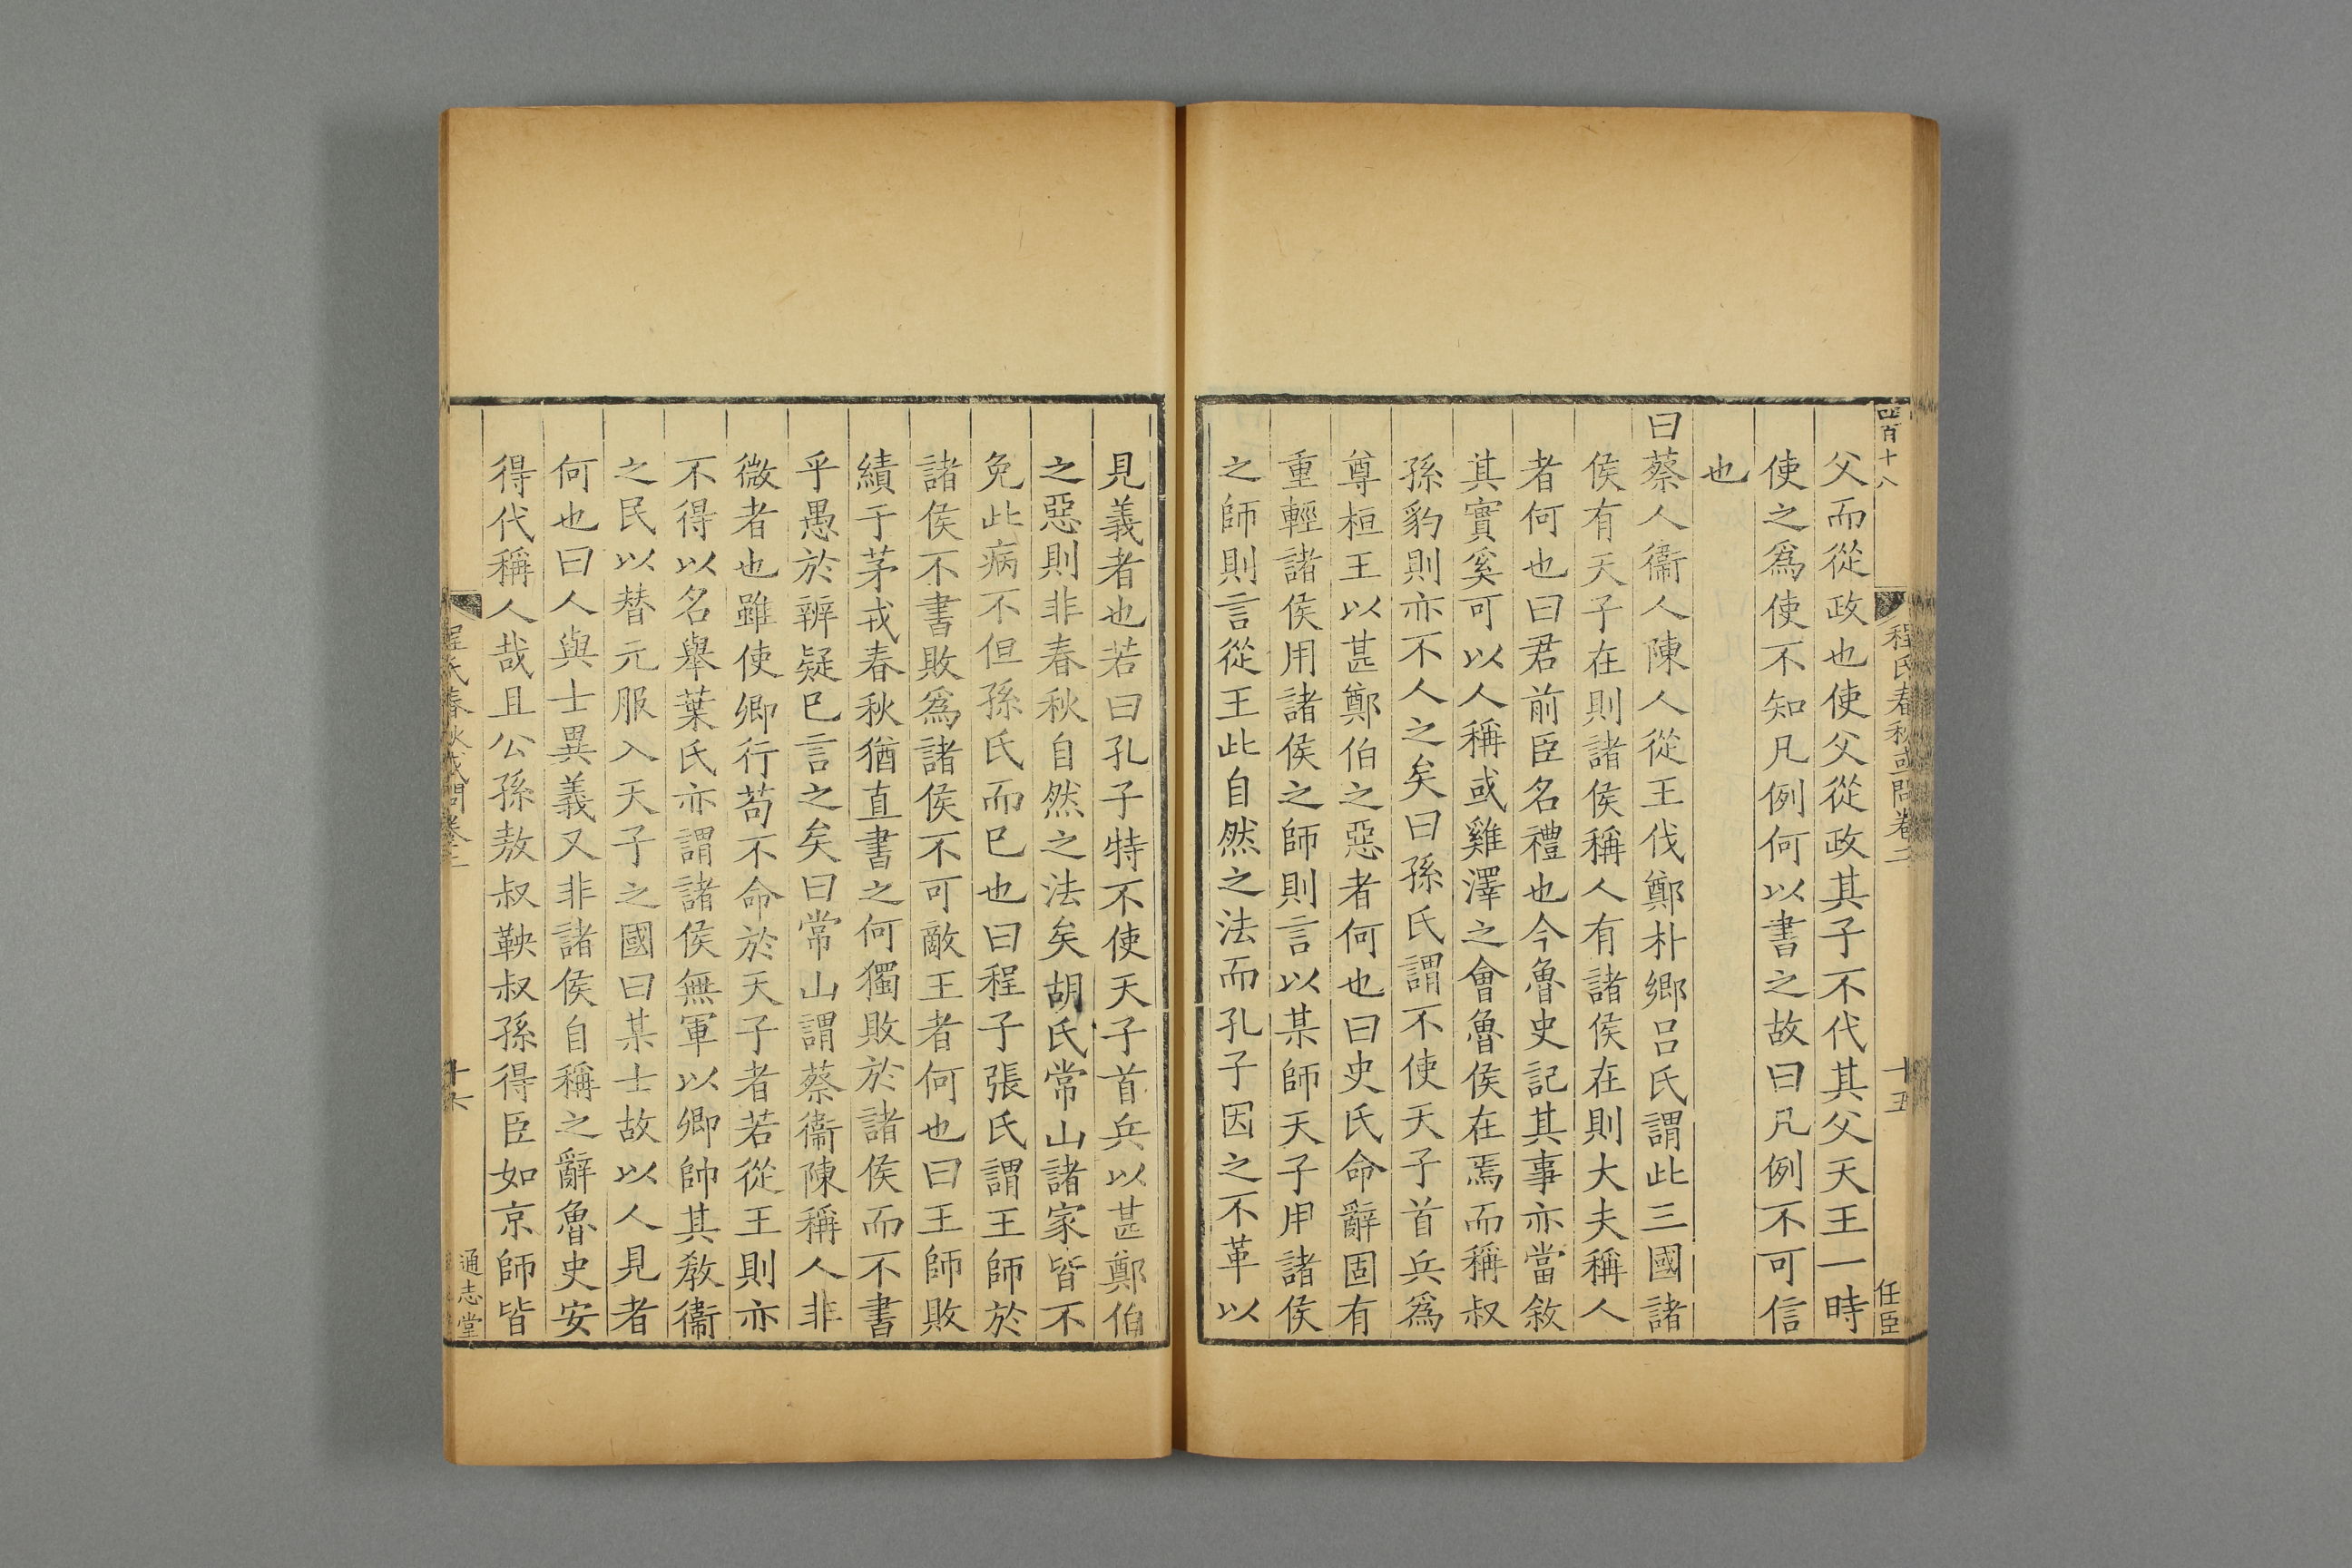 四百十八
程氏春秋或問卷二
十五
任臣
父而從政也使父從政其子不代其父天王一時
使之爲使不知凡例何以書之故曰凡例不可信
也
曰蔡人衞人陳人從王伐鄭朴鄉呂氏謂此三國諸
侯有天子在則諸侯稱人有諸侯在則大夫稱人
者何也曰君前臣名禮也今魯史記其事亦當敘
其實奚可以人稱或雞澤之會魯侯在焉而稱叔
孫豹則亦不人之矣曰孫氏謂不使天子首兵爲
尊桓王以甚鄭伯之惡者何也曰史氏命辭固有
重輕諸侯用諸侯之師則言以某師天子用諸侯
之師則言從王此自然之法而孔子因之不革以
見義者也若曰孔子特不使天子首兵以甚鄭伯
之惡則非春秋自然之法矣胡氏常山諸家皆不
免此病不但孫氏而已也曰程子張氏謂王師於
諸侯不書敗爲諸侯不可敵王者何也曰王師敗
績于茅戎春秋猶直書之何獨敗於諸侯而不書
乎愚於辨疑已言之矣曰常山謂蔡衞陳稱人非
微者也雖使卿行苟不命於天子者若從王則亦
不得以名舉葉氏亦謂諸侯無軍以卿帥其教衞
之民以替元服入天子之國曰某士故以人見者
何也曰人與士異義又非諸侯自稱之辭魯史安
得代稱人哉且公孫敖叔鞅叔孫得臣如京師皆
程氏春秋或問卷二
十六
通志堂